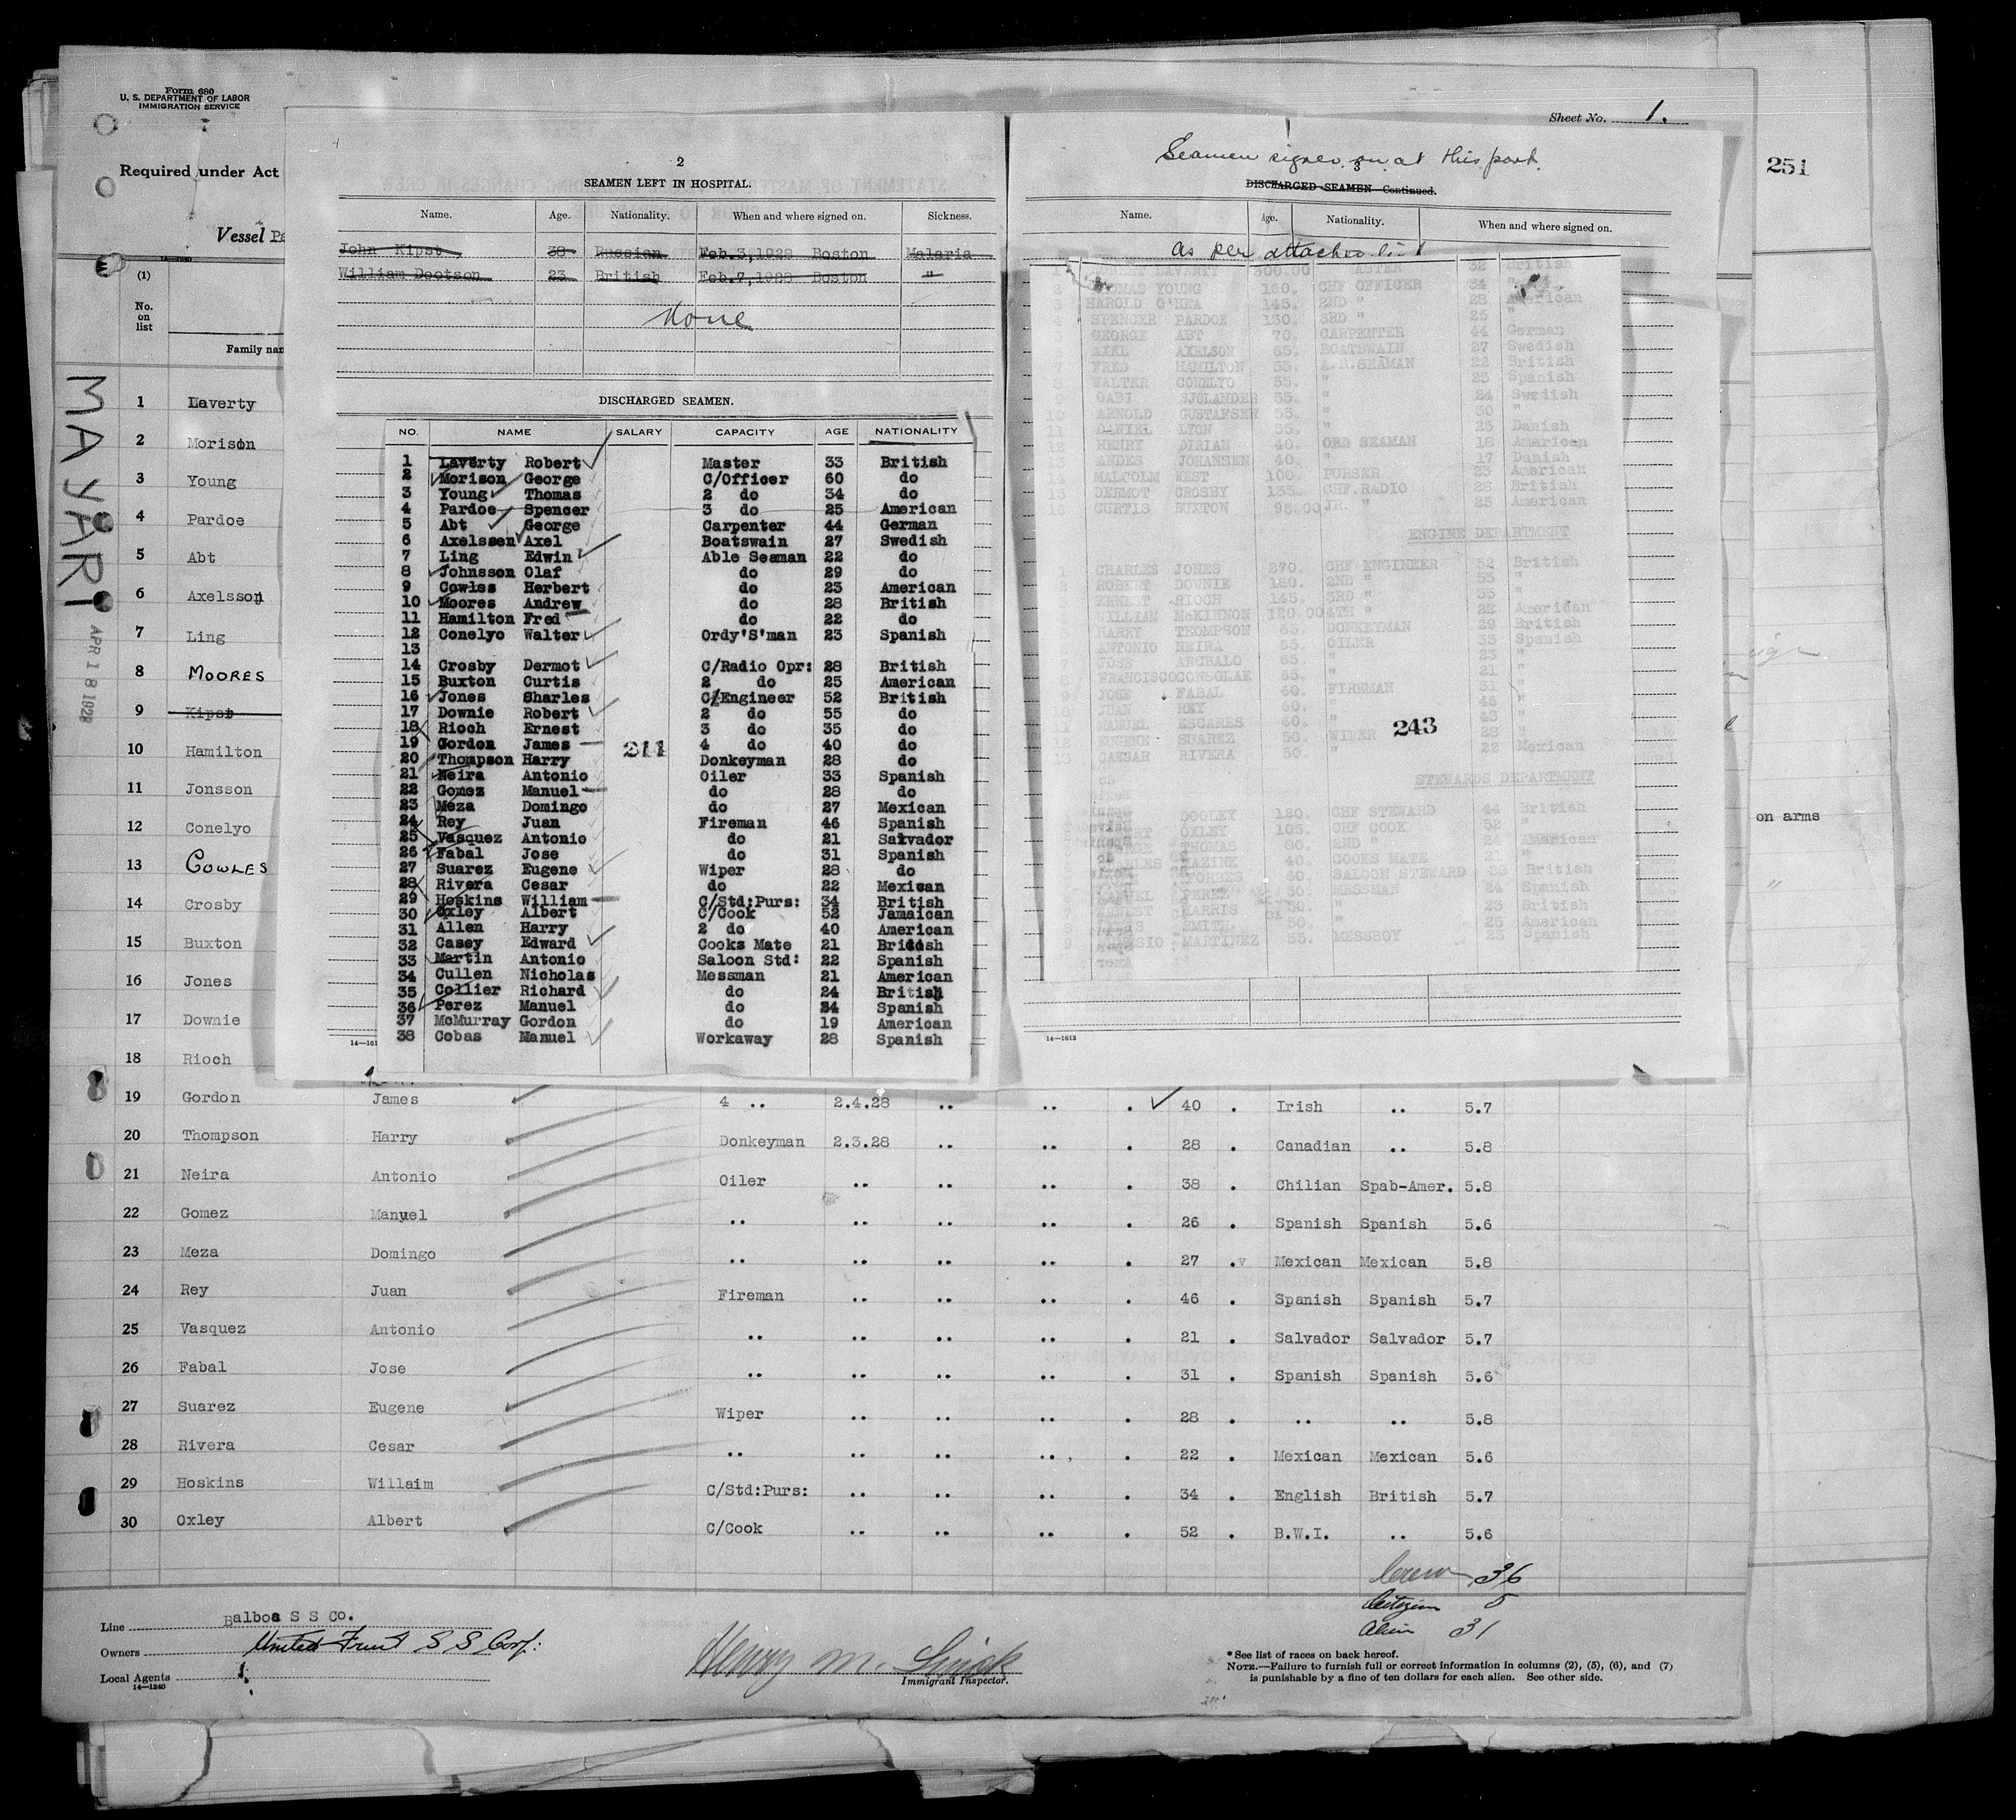 Form 680
U. S. DEPARTMENT OF LABOR
IMMIGRATION SERVICE
Required under Act
Vessel
Sheet No. 1.
251
(1)
No. on list
Family nam
MAYARI
APR 18 1928
1 Laverty
2 Morison
3 Young
4 Pardoe
5 Abt
6 Axelsson
7 Ling
8 MOORES
9 Kipst
10 Hamilton
11 Jonsson
12 Conelyo
13 COWLES
14 Crosby
15 Buxton
16 Jones
17 Downie
18 Rioch
2
SEAMEN LEFT IN HOSPITAL.
Name. Age. Nationality. When and where signed on. Sickness.
John Kipst 38 Russian Feb.3,1928 Boston Malaria
William Dootson 23 British Feb.7,1928 Boston "
None
DISCHARGED SEAMEN.
NO. NAME SALARY CAPACITY AGE NATIONALITY
1 Laverty Robert Master 33 British
2 Morison George C/Officer 60 do
3 Young Thomas 2 do 34 do
4 Pardoe Spencer 3 do 25 American
5 Abt George Carpenter 44 German
6 Axelssen Axel Boatswain 27 Swedish
7 Ling Edwin Able Seaman 22 do
8 Johnsson Olaf do 29 do
9 Cowles Herbert do 23 American
10 Moores Andrew do 28 British
11 Hamilton Fred do 22 do
12 Conelyo Walter Ordy'S'man 23 Spanish
13
14 Crosby Dermot C/Radio Opr: 28 British
15 Buxton Curtis 2 do 25 American
16 Jones Sharles C/Engineer 52 British
17 Downie Robert 2 do 55 do
18 Rioch Ernest 3 do 35 do
19 Gordon James 4 do 40 do
211
20 Thompson Harry Donkeyman 28 do
21 Neira Antonio Oiler 33 Spanish
22 Gomez Manuel do 28 do
23 Meza Domingo do 27 Mexican
24 Rey Juan Fireman 46 Spanish
25 Vasquez Antonio do 21 Salvador
26 Fabal Jose do 31 Spanish
27 Suarez Eugene Wiper 28 do
28 Rivera Cesar do 22 Mexican
29 Hoskins William C/Std:Purs: 34 British
30 Oxley Albert C/Cook 52 Jamaican
31 Allen Harry 2 do 40 American
32 Casey Edward Cooks Mate 21 British
33 Martin Antonio Saloon Std: 22 Spanish
34 Cullen Nicholas Messman 21 American
35 Collier Richard do 24 British
36 Perez Manuel do 24 Spanish
37 McMurray Gordon do 19 American
38 Cobas Manuel Workaway 28 Spanish
14—161
Seamen signed on at this port.
3
DISCHARGED SEAMEN—Continued.
Name. Age. Nationality. When and where signed on.
as per attached list
LAVERTY 300.00 MASTER 32 British
2 THOMAS YOUNG 180. CHF OFFICER 34 "
3 HAROLD O'HEA 145. 2ND " 28 American
4 SPENCER PARDOE 130. 3RD " 25 "
GEORGE ABT 70. CARPENTER 44 German
AXEL AXELSON 65. BOATSWAIN 27 Swedish
7 FRED HAMILTON 55. A.B.SEAMAN 22 British
8 WALTER CONELYO 55. " 23 Spanish
SJOLANDER 55. " 24 Swedish
10 ARNOLD GUSTAFSEN 55. " 30 "
11 DANIEL LYON 55. " 25 Danish
12 HENRY DIRIAN 40. ORD SEAMAN 18 American
13 ANDES JOHANSEN 40. " 17 Danish
14 MALCOLM WEST 100. PURSER 23 American
15 DERMOT CROSBY 135. CHF.RADIO 28 British
16 CURTIS BUXTON 95.00 JR. " 25 American
ENGINE DEPARTMENT
1 CHARLES JONES 270. CHF ENGINEER 52 British
2 ROBERT DOWNIE 180. 2ND " 55 "
ERNEST RIOCH 145. 3RD " 35 "
WILLIAM McKINNON 120.00 4TH " 22 American
HARRY THOMPSON 65. DONKEYMAN 29 British
ANTONIO NEIRA 65. OILER 33 Spanish
7 JOSE ANCHALO 65. " 23 "
8 FRANCISCO CONSOLAE 65. " 21 "
9 JOSE FABAL 60. FIREMAN 31 "
10 JUAN REY 60. " 46 "
11 MANUEL ESCARES 60. " 43 "
EUGENE SUAREZ 50. WIPER 28 "
13 CAESAR RIVERA 50. " 22 Mexican
243
STEWARDS DEPARTMENT
DOOLEY 120. CHF STEWARD 44 British
OXLEY 105. CHF COOK 52 "
THOMAS 80. 2ND " 24 American
40. COOKS MATE 21 "
FORBES 60. SALOON STEWARD British
PEREZ 50. MESSMAN 24 Spanish
HARRIS 50. " 23 British
SMITH 50. " 25 American
9 MARTINEZ 35. MESSBOY 23 Spanish
14—1613
on arms
"
19 Gordon James 4 .. 2.4.28 .. .. . 40 . Irish .. 5.7
20 Thompson Harry Donkeyman 2.3.28 .. .. . 28 . Canadian .. 5.8
21 Neira Antonio Oiler .. .. .. . 38 . Chilian Spab-Amer. 5.8
22 Gomez Manuel .. .. .. .. . 26 . Spanish Spanish 5.6
23 Meza Domingo .. .. .. .. . 27 .v Mexican Mexican 5.8
24 Rey Juan Fireman .. .. .. . 46 . Spanish Spanish 5.7
25 Vasquez Antonio .. .. .. .. . 21 . Salvador Salvador 5.7
26 Fabal Jose .. .. .. .. . 31 . Spanish Spanish 5.6
27 Suarez Eugene Wiper .. .. .. . 28 . .. .. 5.8
28 Rivera Cesar .. .. .. .. . 22 . Mexican Mexican 5.6
29 Hoskins Willaim C/Std:Purs: .. .. .. . 34 . English British 5.7
30 Oxley Albert C/Cook .. .. .. . 52 . B.W.I. .. 5.6
Crew 36
Citizen 5
Alien 31
Line Balboa S S Co.
Owners United Fruit S S Corp:
Local Agents
14—1240
Henry M.
Immigrant Inspector.
* See list of races on back hereof.
NOTE.—Failure to furnish full or correct information in columns (2), (5), (6), and (7)
is punishable by a fine of ten dollars for each alien. See other side.